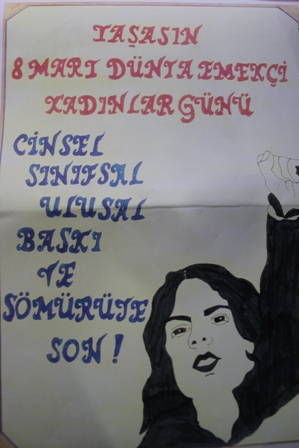 YAŞASIN
8 MART DÜNYA EMEKÇİ
KADINLAR GÜNÜ
CİNSEL
SINIFSAL
ULUSAL
BASKI
VE
SÖMÜRÜYE
SON!